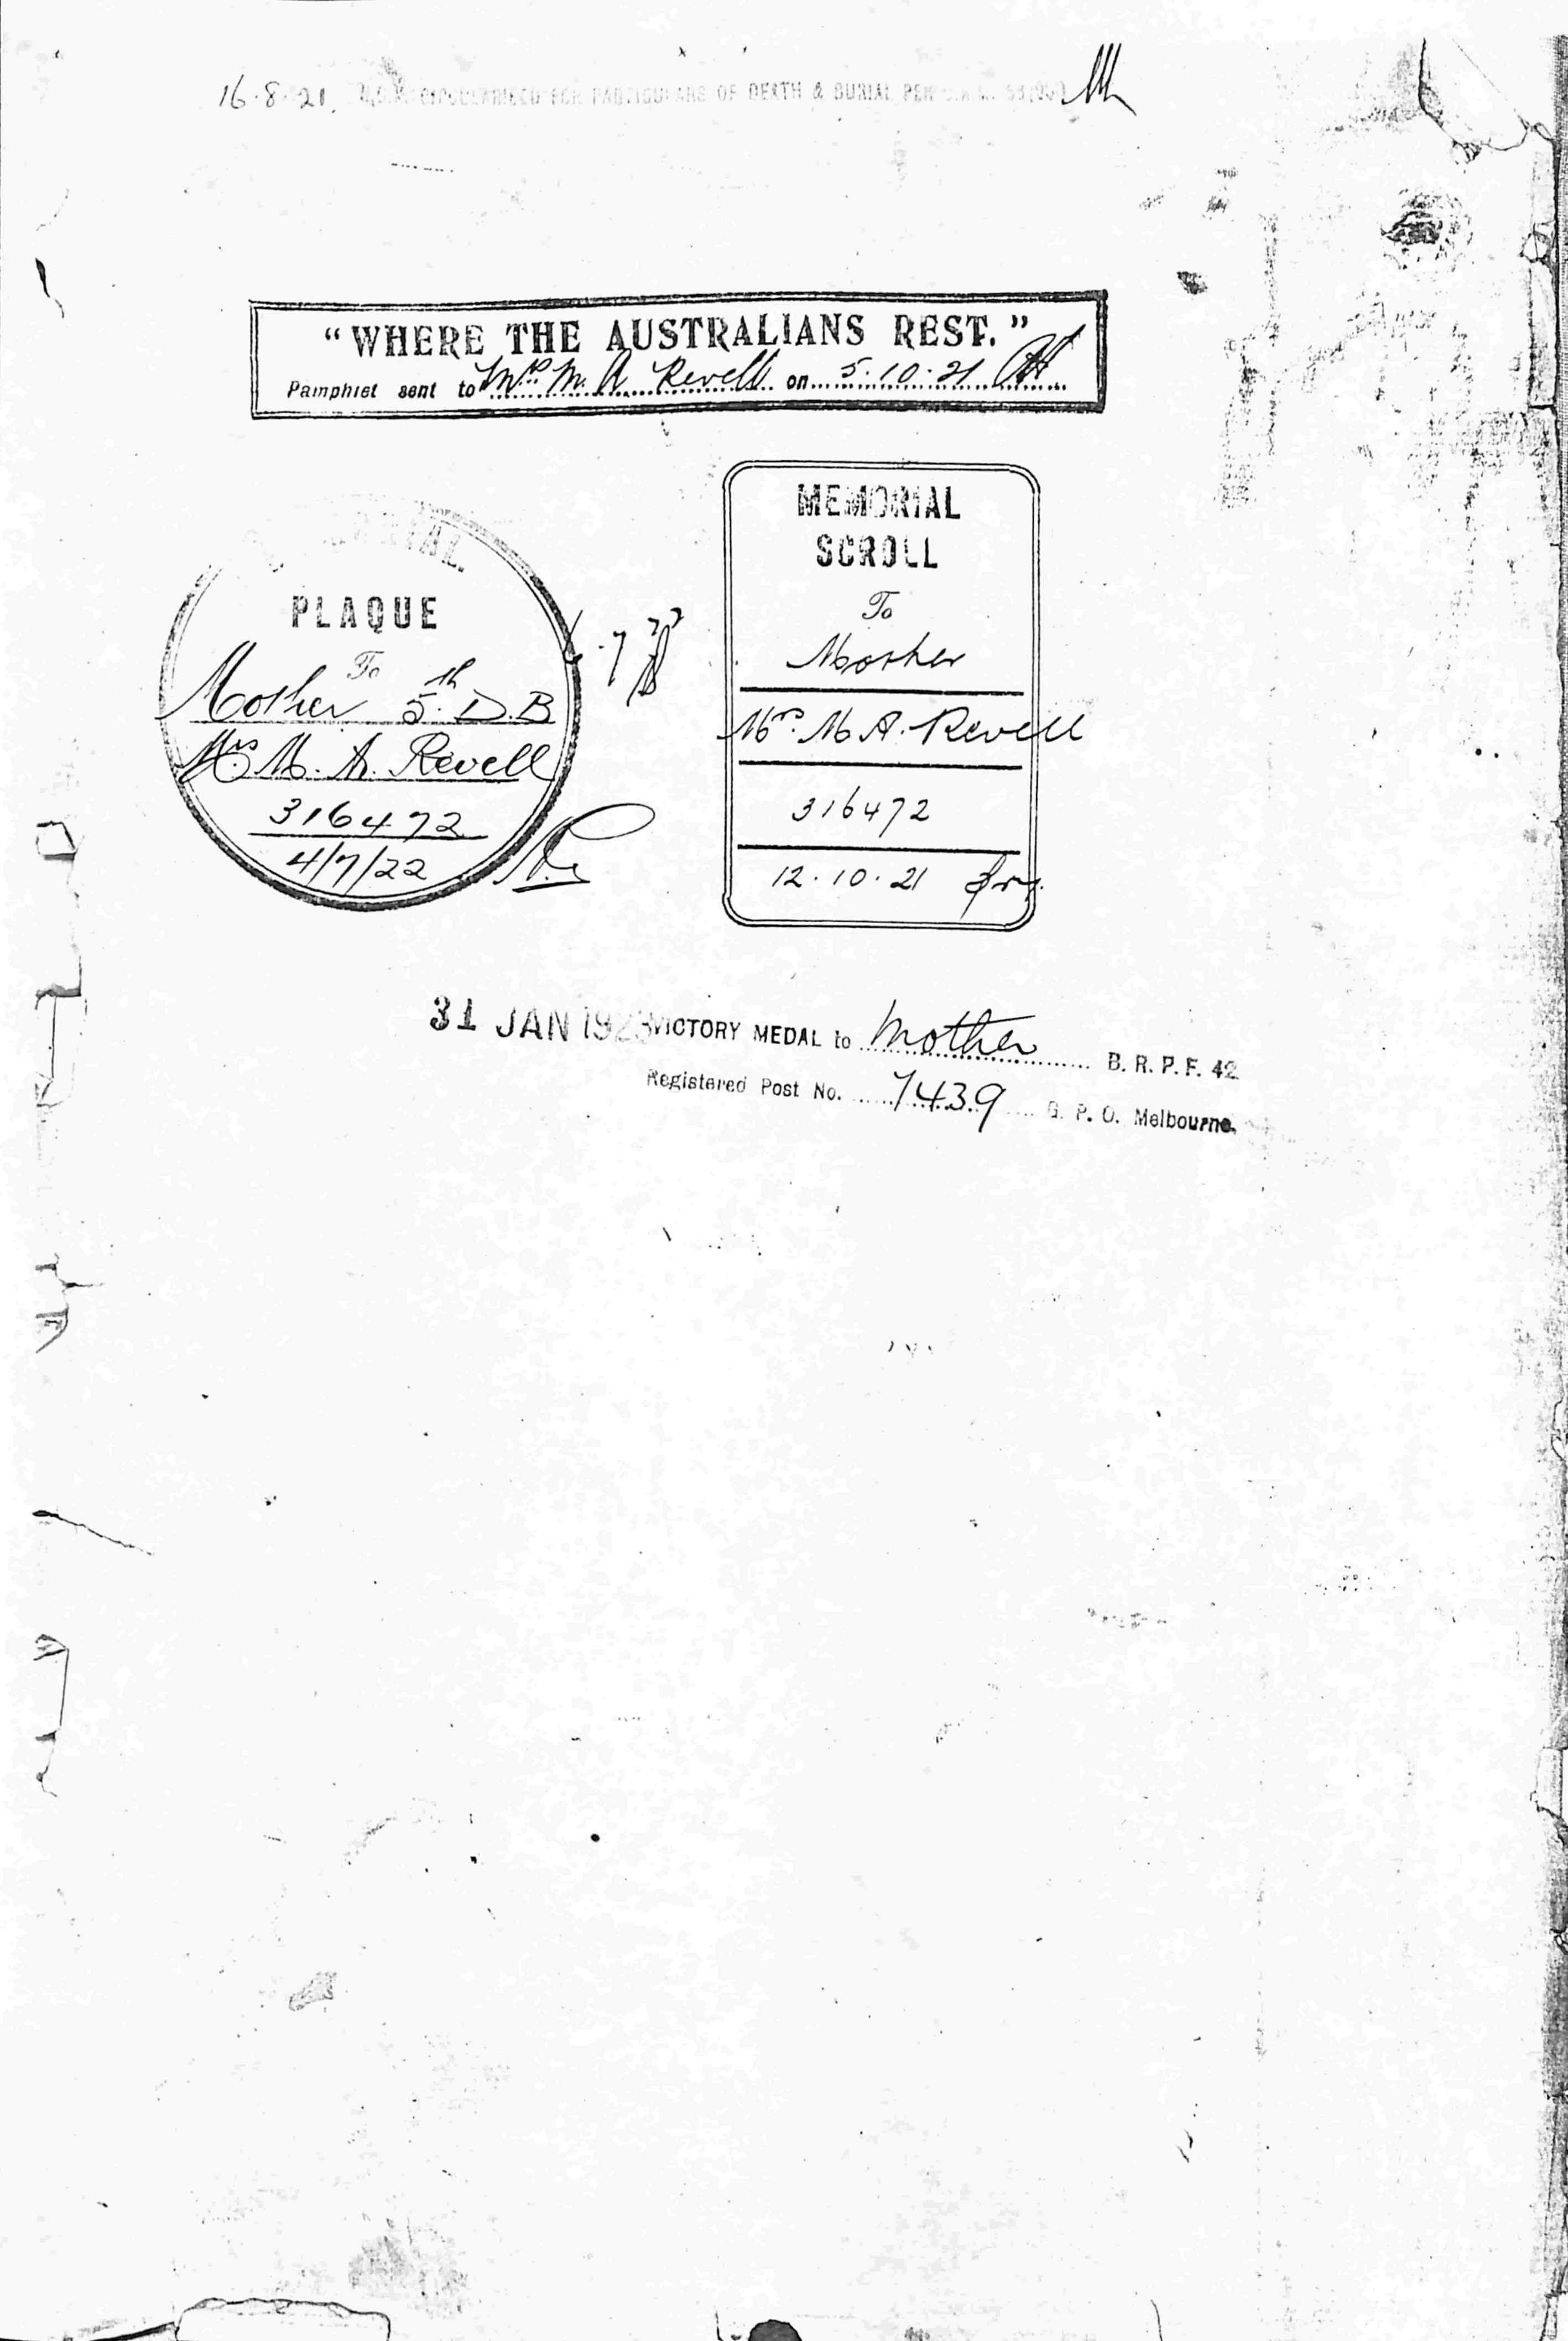 16.8.21. CIRCULARISED FOR PARTICULARS OF DEATH & BURIAL PER
"WHERE THE AUSTRALIANS REST."
Pamphlet sent to Mrs M. A. Revell on 5.10.21
MEMORIAL
PLAQUE
To
Mother 5th D.B
Mrs M. A. Revell
316472
4/7/22
MEMORIAL
SCROLL
To
Mother
Mrs. M A. Revell
316472
12.10.21
31 JAN 1923 VICTORY MEDAL to Mother B. R. P. F. 42
Registered Post No. 7439 G. P. O. Melbourne.